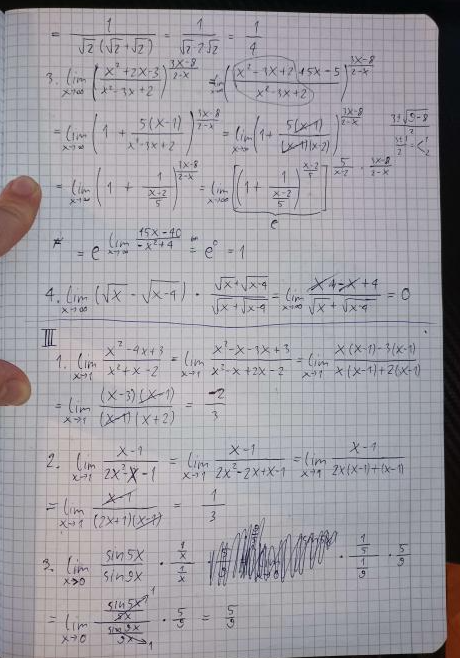 = 1/(√2 (√2 + √2)) = 1/(√2 · 2√2) = 1/4
3. lim x→∞ ((x² + 2x - 3)/(x² - 3x + 2))^((3x-8)/(2-x)) = lim x→∞ ((x² - 3x + 2 + 5x - 5)/(x² - 3x + 2))^((3x-8)/(2-x))
= lim x→∞ (1 + 5(x-1)/(x² - 3x + 2))^((3x-8)/(2-x)) = lim x→∞ (1 + 5(x-1)/((x-1)(x-2)))^((3x-8)/(2-x))
= lim x→∞ (1 + 1/((x-2)/5))^((3x-8)/(2-x)) = lim x→∞ [(1 + 1/((x-2)/5))^((x-2)/5)]^(5/(x-2) · (3x-8)/(2-x))
e
= e^(lim x→∞ (15x-40)/(-x²+4)) = e⁰ = 1
4. lim x→∞ (√x - √(x-4)) · (√x + √(x-4))/(√x + √(x-4)) = lim x→∞ (x - x + 4)/(√x + √(x-4)) = 0
III
1. lim x→1 (x² - 4x + 3)/(x² + x - 2) = lim x→1 (x² - x - 3x + 3)/(x² - x + 2x - 2) = lim x→1 (x(x-1) - 3(x-1))/(x(x-1) + 2(x-1))
= lim x→1 ((x-3)(x-1))/((x-1)(x+2)) = -2/3
2. lim x→1 (x-1)/(2x² - x - 1) = lim x→1 (x-1)/(2x² - 2x + x - 1) = lim x→1 (x-1)/(2x(x-1) + (x-1))
= lim x→1 (x-1)/((2x+1)(x-1)) = 1/3
3. lim x→0 sin5x/sin9x · (1/x)/(1/x) · (1/5)/(1/9) · 5/9
= lim x→0 (sin5x/5x)/(sin9x/9x) · 5/9 = 5/9